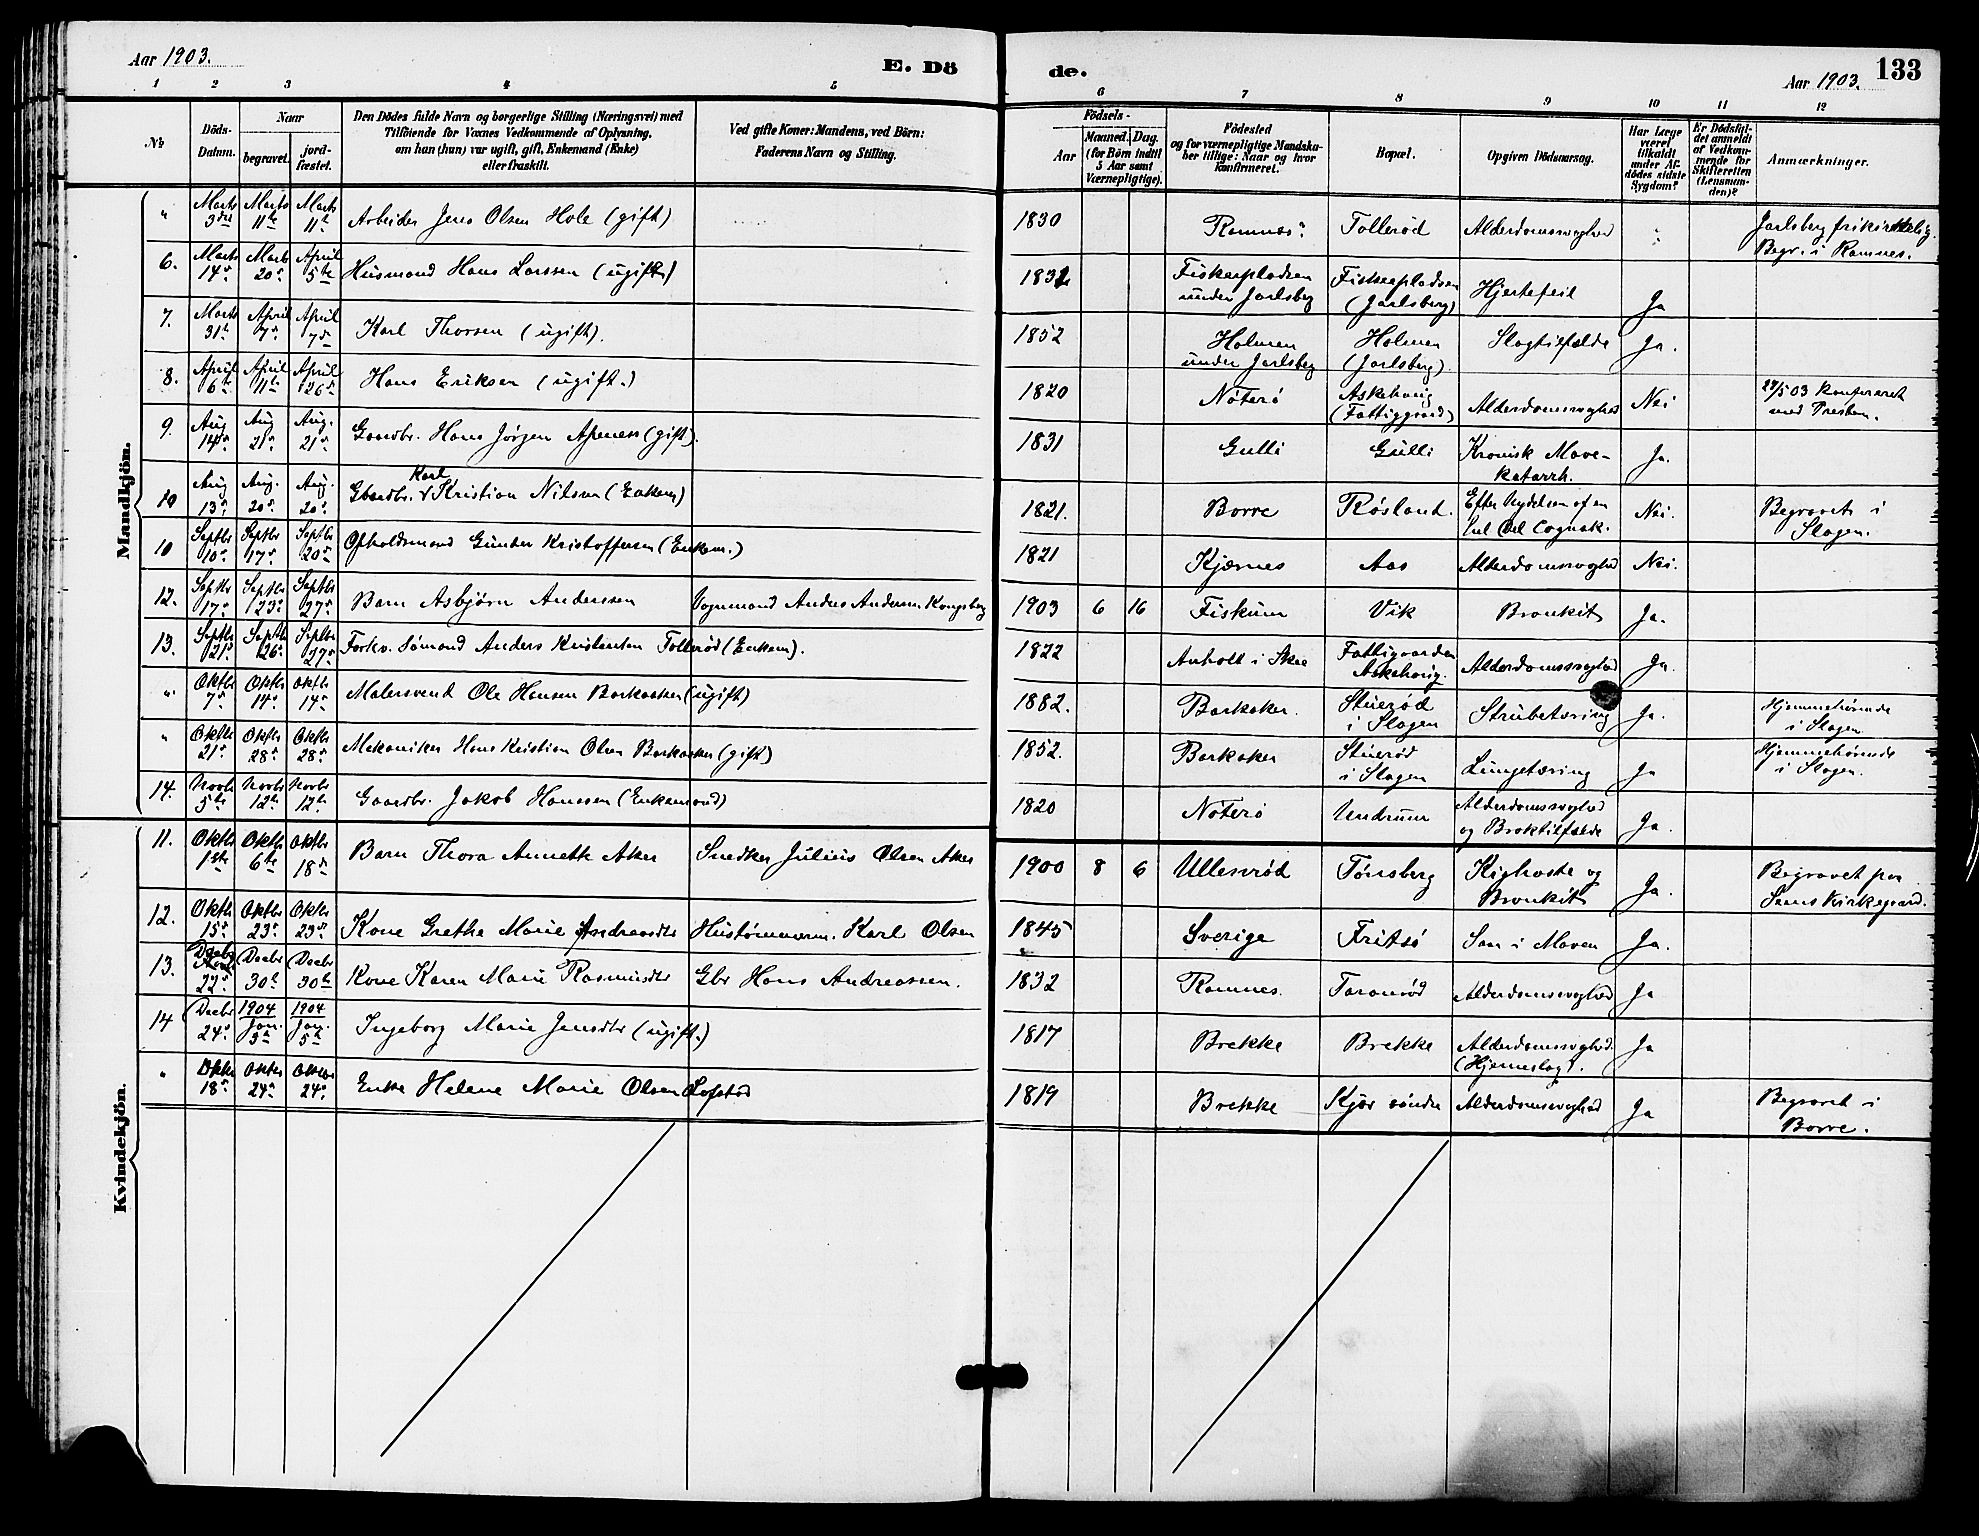 Aar 1903.
E. Dö
de.
Aar 1903.
133
1 2 3 4 5
6 7 8 9 10 11 12
№
Döds-
Datum.
Naar
begravet.
jord-
fæstet.
Den Dödes fulde Navn og borgerlige Stilling (Næringsvei) med
Tilföiende for Voxnes Vedkommende af Oplysning,
om han (hun) var ugift, gift, Enkemand (Enke)
eller fraskilt.
Ved gifte Koner: Mandens, ved Börn:
Faderens Navn og Stilling.
Födsels-
Aar
Maaned. Dag.
(for Börn indtil
5 Aar samt
Værnepligtige).
Födested
og for værnepligtige Mandska-
ber tillige: Naar og hvor
konfirmeret.
Bopæl.
Opgiven Dödsaarsag.
Har Læge
været
tilkaldt
under Af-
dödes sidste
Sygdom?
Er Dödsfal-
det anmeldt
af Vedkom-
mende for
Skifteretten
(Lensman-
den)?
Anmærkninger.
Mandkjön.
" Marts 3die Marts 11te Marts 11te Arbeider Jens Olsen Hole (gift) 1830 Ramnes Tollerød Alderdomssvaghed " Jarlsberg frikirkelig.
Begr. i Ramnes.
6. Marts 14de Marts 20de April 5te Husmand Hans Larssen (ugift) Fiskerpladsen
under Jarlsberg Fiskerpladsen
(Jarlsberg) Hjertefeil Ja
7. Marts 31te April 7de April 7de Karl Thorsen (ugift). 1852 Holmen
under Jarlsberg Holmen
(Jarlsberg). Slagtilfælde Ja.
8. April 6te April 11te April 26de Hans Eriksen (ugift.) 1820 Nøterø Askehaug
(Fattiggaard) Alderdomssvaghed Nei 27/5 03 konfereret
med Presten.
9. Aug 14de Aug 21de Aug. 21de Gaardbr. Hans Jørgen Apeness (gift). 1831 Gulli Gulli Kronisk Mave-
katarrh. Ja.
10 Aug 13de Aug. 20de Aug. 20de Gbaardbr. Karl Kristian Nilsen (Enkem) 1821. Borre Røsland. Efter Nydelsen af en
hel Del Cognak. Nei. Begravet i
Slagen.
10 Septbr 10de Septbr 17de Septbr 20de Opholdsmand Günder Kristoffersen (Enkem.) 1821 Kjærnes Aas Alderdomssvaghed Nei.
12. Septbr 17de Septbr 23de Septbr 27de Barn Asbjörn Anderssen Vognmand Anders Andersen Kongsberg 1903 6 16 Fiskum Vik Bronkit Ja.
13. Septbr 21de Septbr 26de Septbr 27de Forhv. Sømand Anders Kristensen Tollerød (Enkem). 1822 Anholt i Skee Fattiggaarden
Askehaug. Alderdomssvaghed Ja.
" Oktbr 7de Oktbr 14de Oktbr 14de Malersvend Ole Hansen Barkaaker (ugift) 1882. Barkaker. Stuerød
i Slagen Strubetæring Ja. Hjemmehørende
i Slagen
" Oktbr 21de Oktbr 28de Oktbr 28de Mekaniker Hans Kristian Olsen Barkaaker (gift) 1852. Barkaker Stuerød
i Slagen Lungetæring Ja Hjemmehørende
i Slagen.
14. Novbr 5te Novbr 12te Novbr 12te Gaardbr. Jakob Hanssen (Enkemand) 1820 Nøterø Undrum Alderdomssvaghed
og Broktilfælde Ja.
Kvindekjön.
11. Oktbr 1ste Oktbr 6te Oktbr 18de Barn Thora Annette Aker Snedker Julius Olsen Aker 1900 8 6 Ullesrød Tønsberg Kighoste og
Bronkit Ja. Begravet paa
Sems Kirkegaard.
12. Oktbr 15de Oktbr 23de Oktbr 23de Kone Grethe Marie Andreasdtr Hustømmerm. Karl Olsen 1845 Sverige Fritsø Saar i Maven Ja.
13. Decbr 22de Decbr 30te Decbr 30te Kone Karen Marie Rasmusdtr Gbr Hans Andreassen. 1832 Ramnes. Taranrød Alderdomssvaghed Ja
14 Decbr 24de 1904 Jan. 5te 1904 Jan. 5te Ingeborg Marie Jensdtr (ugift.) 1817 Brekke Brekke Alderdomssvaghed.
(Hjerneslag). Ja
" Oktbr 18de Oktbr 24de Oktbr 24de Enke Helene Marie Olsen Lofstad 1819 Brekke Kjær søndre Alderdomssvaghed Ja Begravet i
Borre.